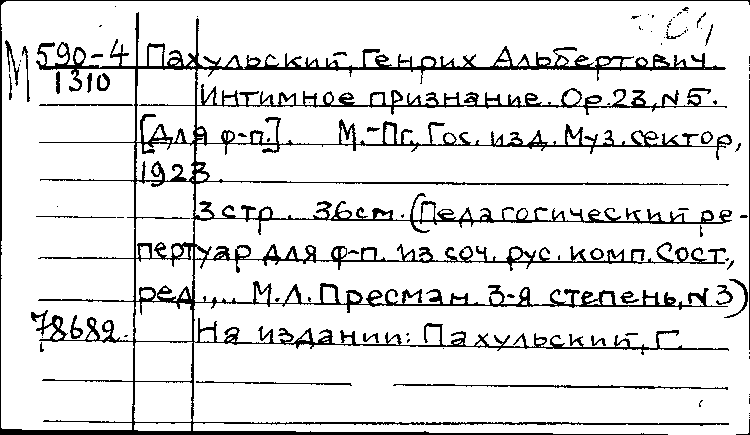 М 590-4 Пахульский, Генрих Альбертович.
1310
Интимное признание. Op. 23, N 5.
[Для ф-п.]. М.-Пг., Гос. изд. Муз. сектор,
1923.
3 стр. 36 см. (Педагогический ре-
пертуар для ф-п. из соч. рус. комп. Сост.,
ред.,.. М.Л. Пресман. 3-я степень, N 3)
78682. На издании: Пахульский, Г.